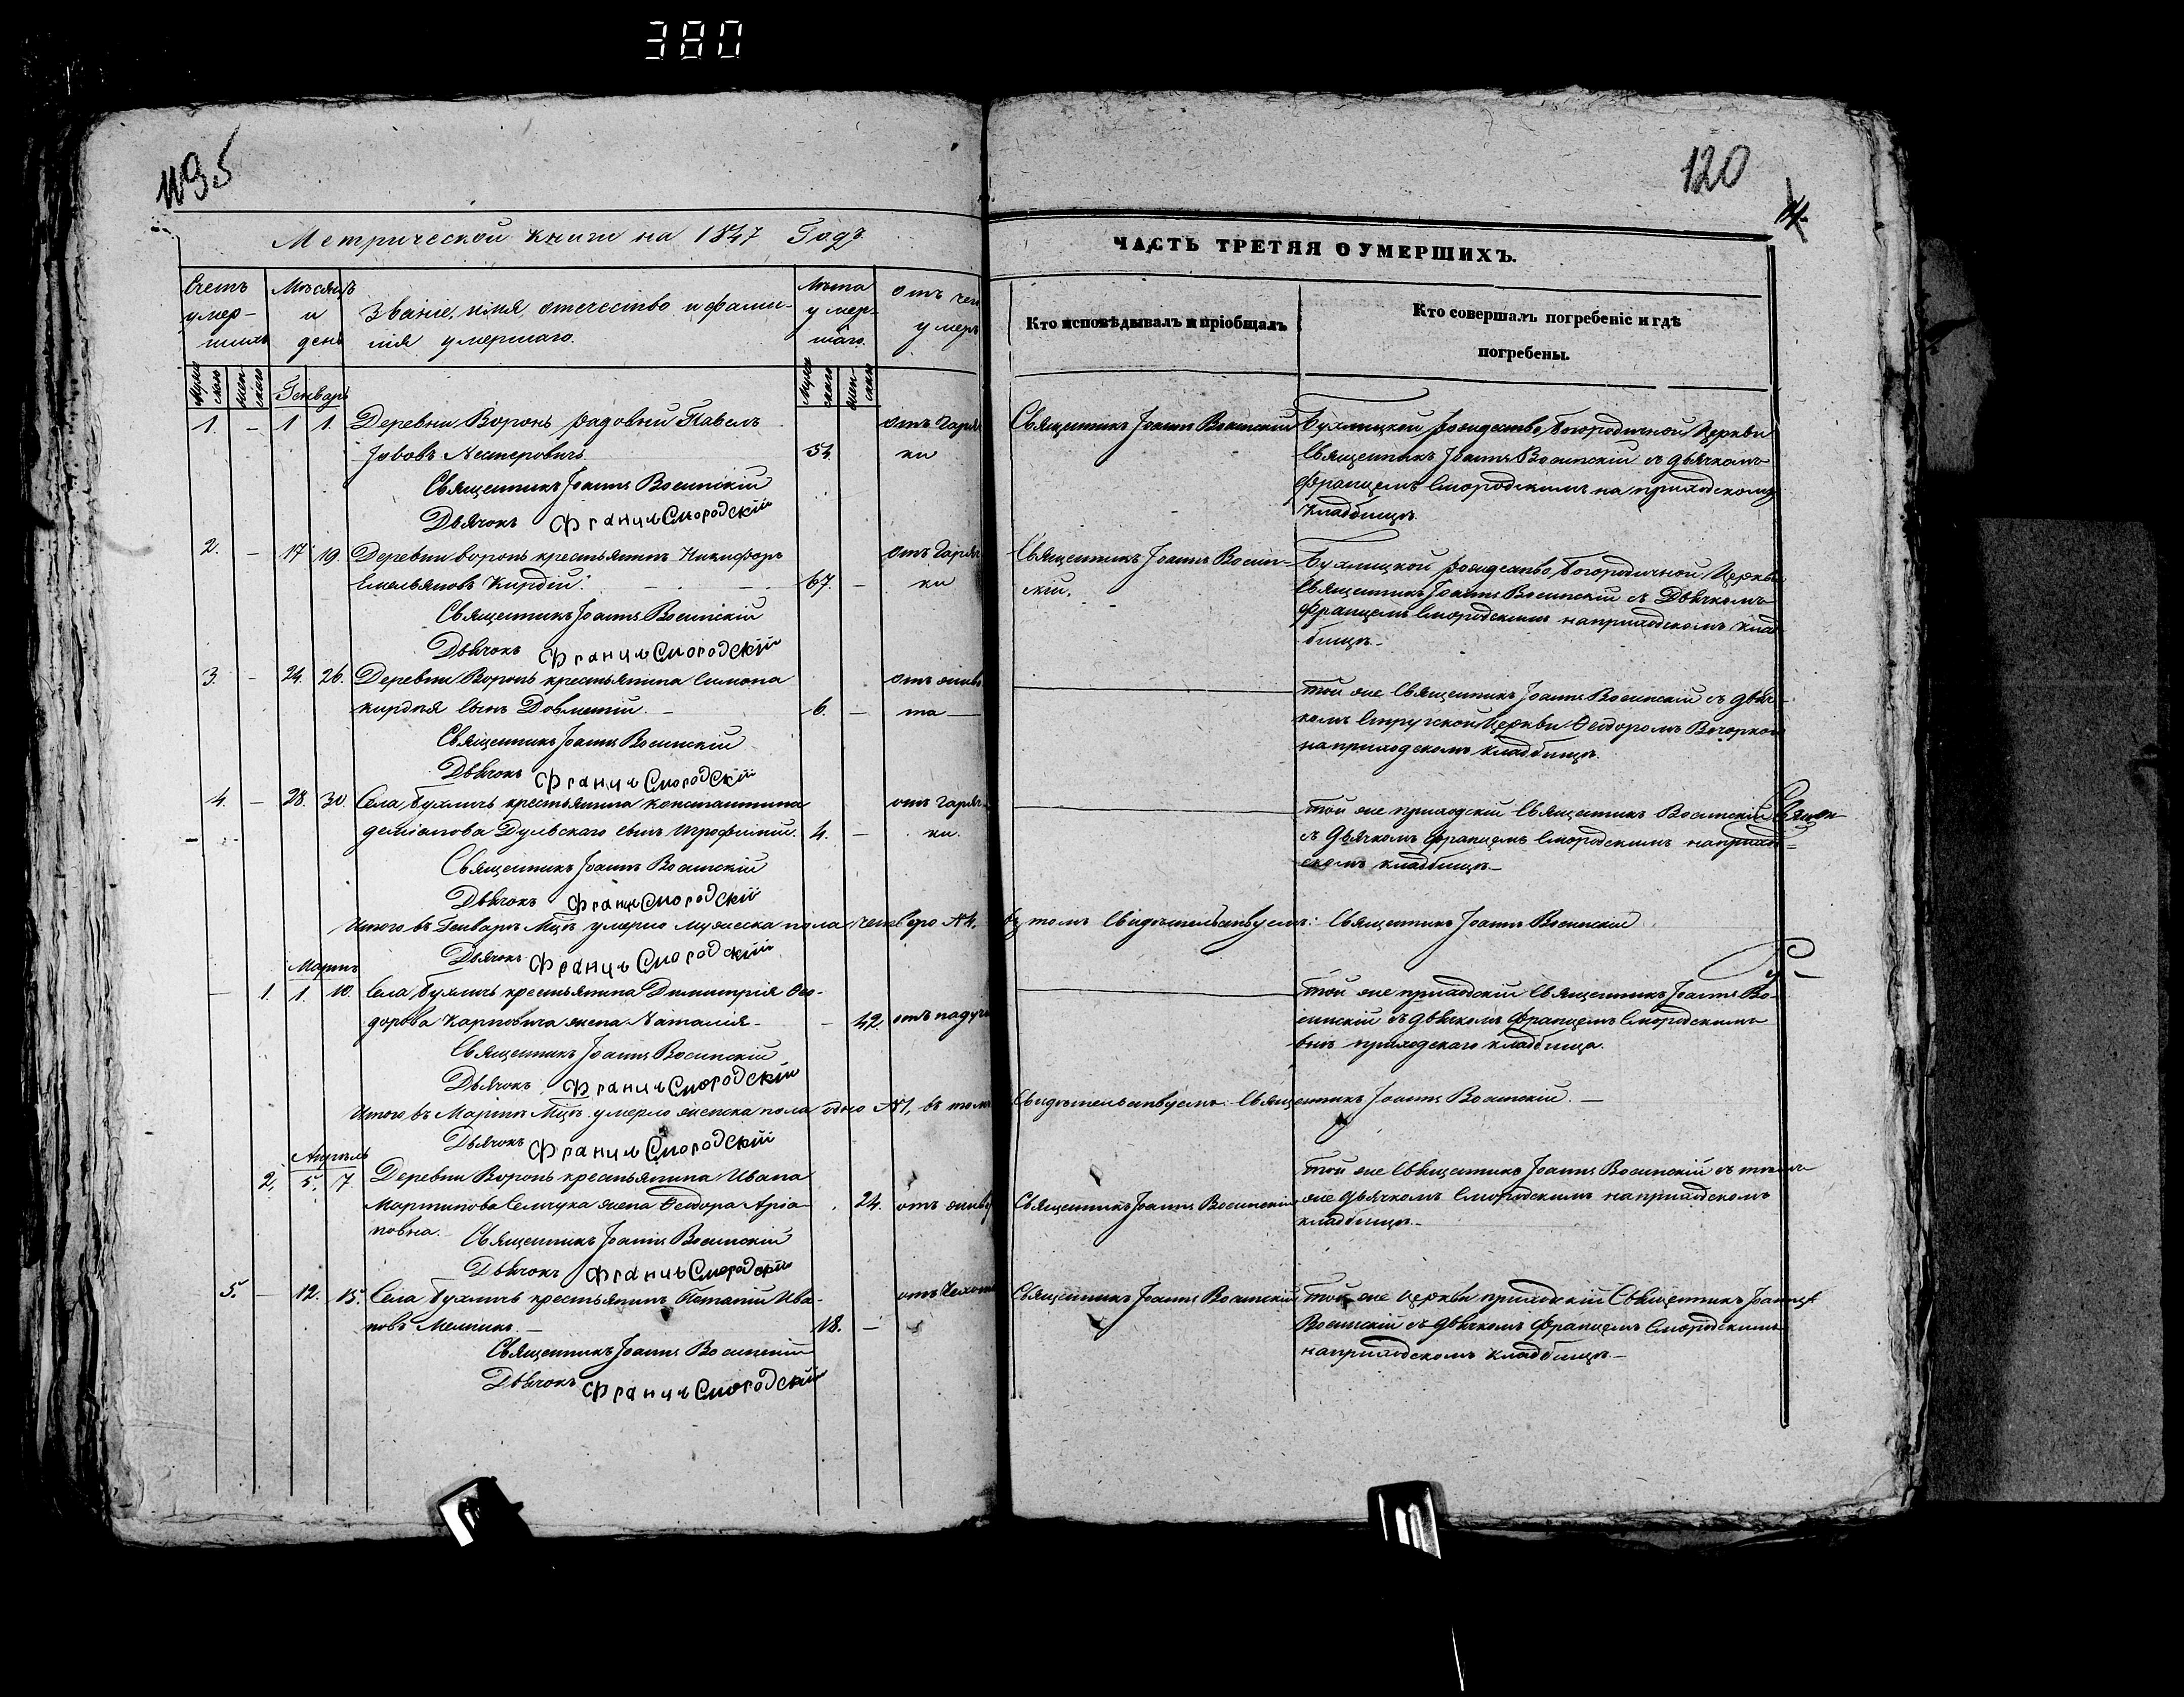 380
1195
120
Метрической книги на 1847 Годъ
ЧАСТЬ ТРЕТЯЯ О УМЕРШИХЪ.
Счетъ умер-шихъ
Мѣсяцъ и день
Званіе, имя, отечество и фами-
лія умершаго.
Лѣта умер-шаго.
отъ чего умеръ
Кто исповѣдывалъ и пріобщалъ
Кто совершалъ погребеніе и гдѣ
погребены.
Муже скаго
жен-скаго
Муже скаго
жен-скаго
Генварь
1. – 1 1. Деревни Воронь рядовый Павелъ
Іововъ Нестеровичъ 54. отъ Горяч-
ки
Священникъ Іоаннъ Воеинскій
Дьячокъ Францъ Смородскій
Священникъ Іоаннъ Воеинскій
Бухлицкой рождество Богородичной Церкви
Священникъ Іоаннъ Воеинскій съ дьячкомъ
Францемъ Смородскимъ на приходскомъ
кладбищѣ.
2. – 17 19. Деревни Воронь крестьянинъ Никифоръ
Емельяновъ Кирдій. 67. – отъ Горяч-
ки
Священникъ Іоаннъ Воеинскій
Дьячокъ Францъ Смородскій
Священникъ Іоаннъ Воеин-
скій.
Бухлицкой рождество Богородичной Церкви
Священникъ Іоаннъ Воеинскій съ Дьячкомъ
Францемъ Смородскимъ на приходскомъ клад-
бищѣ.
3. – 24. 26. Деревни Воронь крестьянина Симона
кирдѣя сынъ 6. –
Священникъ Іоаннъ Воеинскій
Дьячокъ Францъ Смородскій
той же Священникъ Іоаннъ Воеинскій съ дьяч-
комъ Церкви Ѳеодоромъ
на приходскомъ кладбищѣ.
4. – 28. 30. Села Бухличь крестьянина Константина
сынъ 4. – отъ горяч-
ки.
Священникъ Іоаннъ Воеинскій
Дьячокъ Францъ Смородскій
той же приходскій Священникъ Воеинскій
съ Дьячкомъ Францемъ Смородскимъ на приход-
скомъ кладбищѣ.–
Итого въ Генварѣ Мцѣ умерло мужеска пола четверо №4. въ томъ Свидѣтельствуемъ: Священникъ Іоаннъ Воеинскій
Дьячокъ Францъ Смородскій
Мартъ
– 1. 1. 10. Села Бухличь крестьянина Димитрія Ѳео-
дорова Карповича жена Наталія – – 42. отъ
Священникъ Іоаннъ Воеинскій
Дьячокъ Францъ Смородскій
той же приходскій Священникъ Іоаннъ Во-
еинскій съ дьячкомъ Францемъ Смородскимъ
внѣ приходскаго кладбища.
Итого въ Мартѣ Мцѣ умерло женска пола одно №1, въ томъ Свидѣтельствуемъ: Священникъ Іоаннъ Воеинскій. –
Дьячокъ Францъ Смородскій
Апрѣль
2. 5. 7. Деревни Воронь крестьянина Ивана
Мартинова жена Ѳеодора 24.
Священникъ Іоаннъ Воеинскій
Дьячокъ Францъ Смородскій
Священникъ Іоаннъ Воеинскій
той же Священникъ Іоаннъ Воеинскій съ тѣмъ
же дьячкомъ Смородскимъ на приходскомъ
кладбищѣ.–
5. – 12. 15. Села Бухличь крестьянинъ Ива-
новъ Мельникъ. – 18. –
Священникъ Іоаннъ Воеинскій
Дьячокъ Францъ Смородскій
Священникъ Іоаннъ Воеинскій
той же церкви приходскій Священникъ Іоаннъ
Воеинскій съ дьячкомъ Францемъ Смородскимъ
на приходскомъ кладбищѣ.–